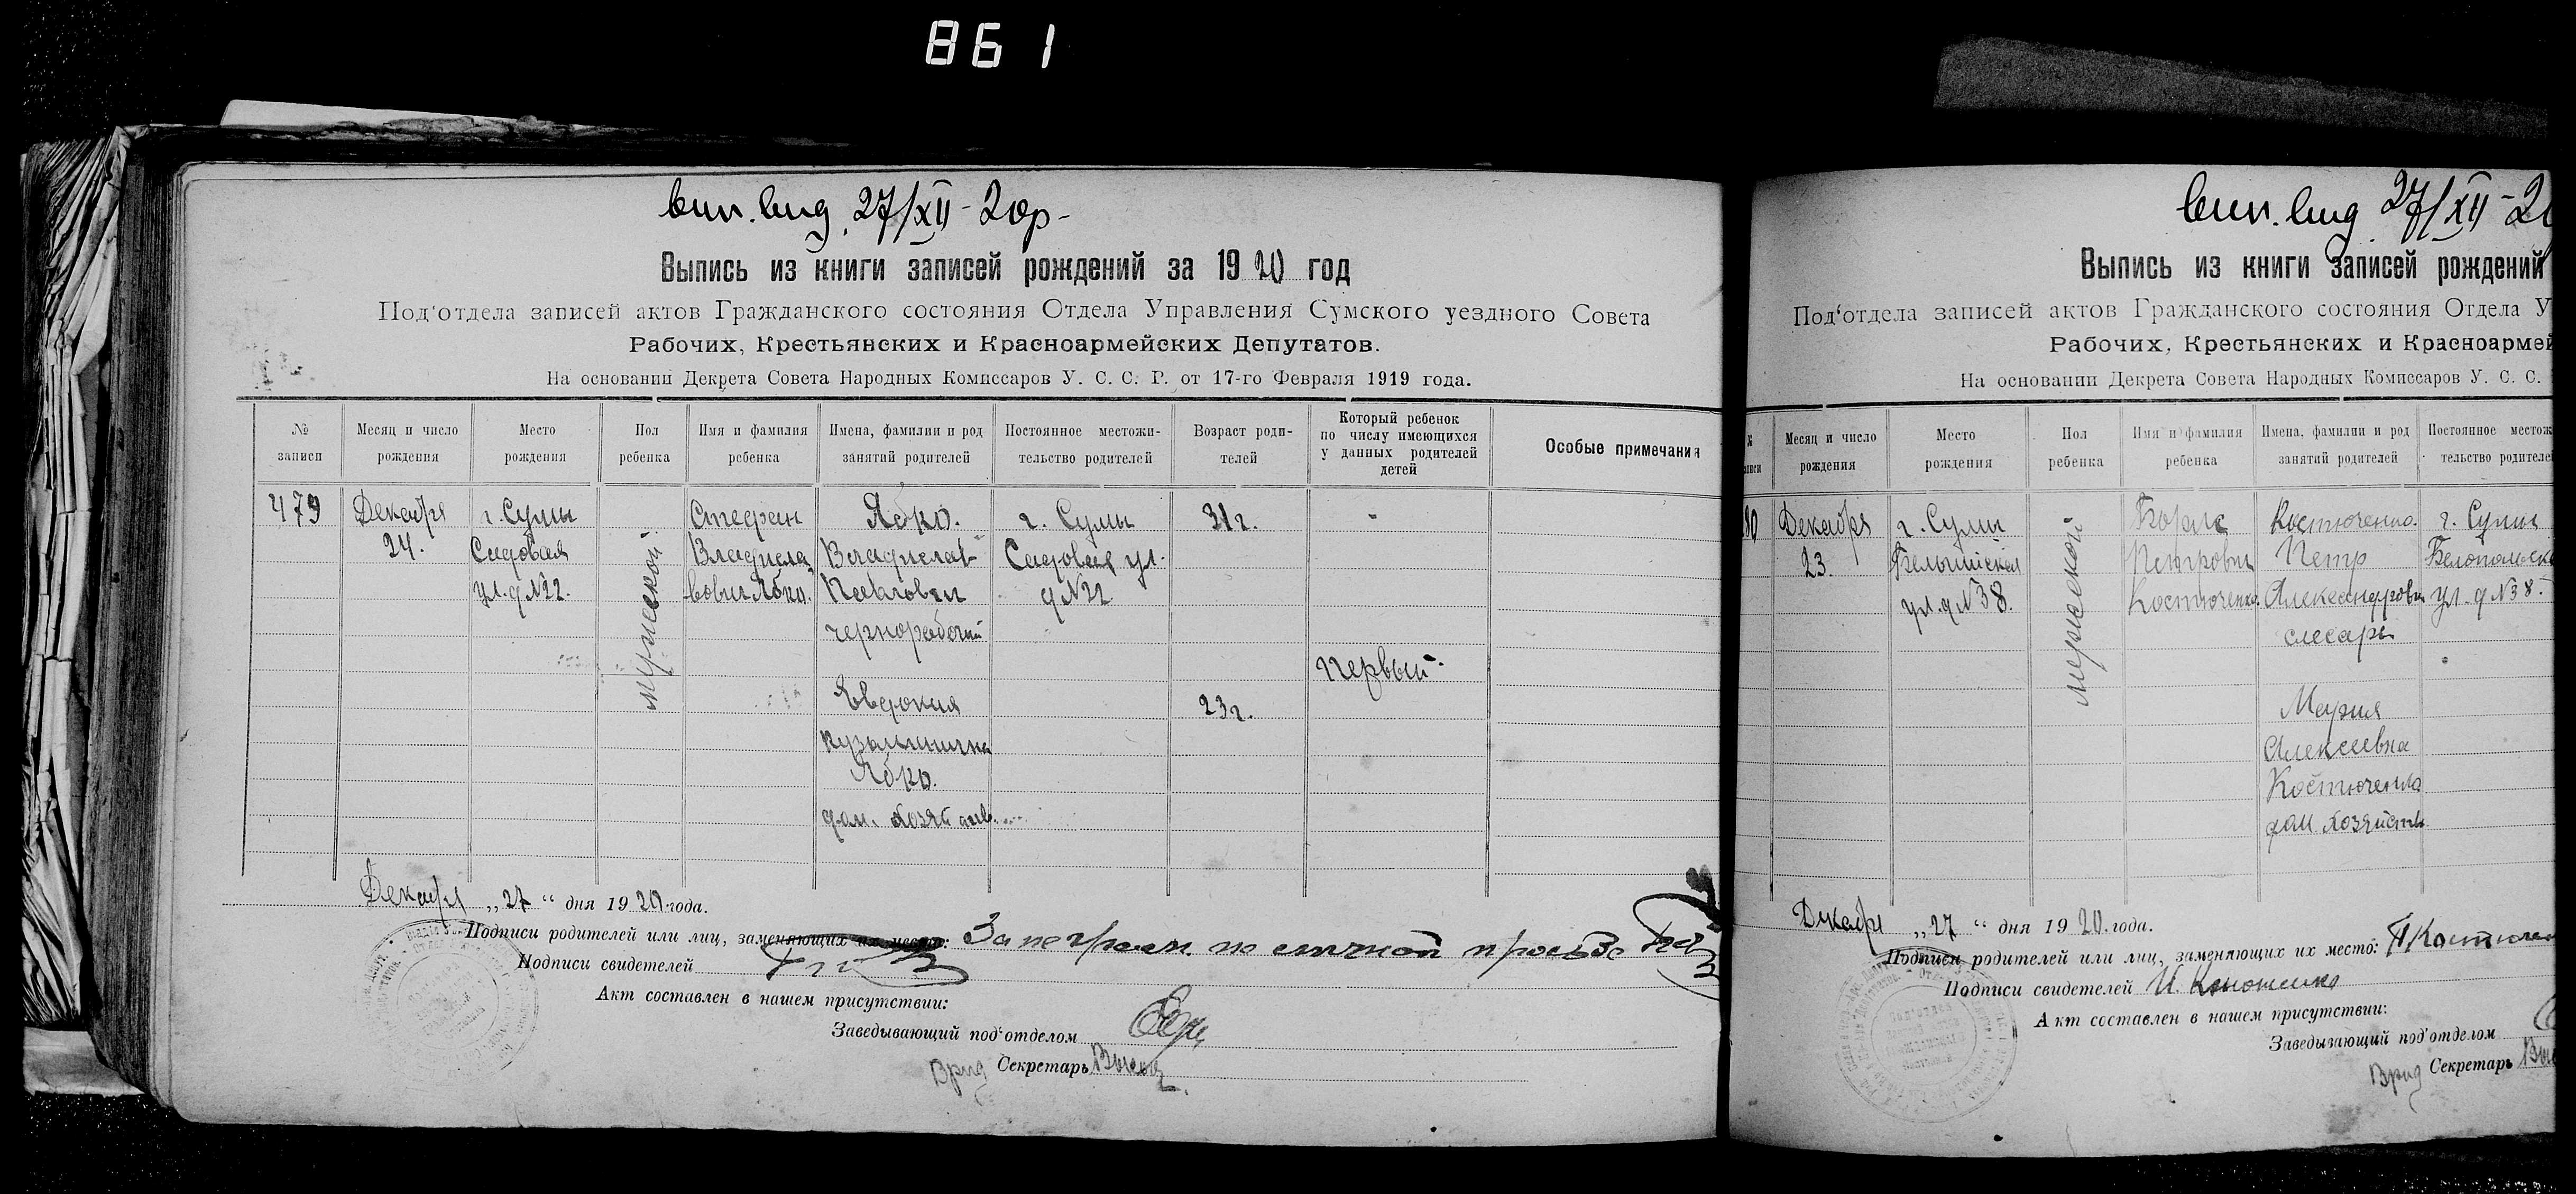 861
вып. выд. 27/XII-20р-
Выпись из книги записей рождений за 1920 год
Под'отдела записей актов Гражданского состояния Отдела Управления Сумского уездного Совета
Рабочих, Крестьянских и Красноармейских Депутатов.
На основании Декрета Совета Народных Комиссаров У. С. С. Р. от 17-го Февраля 1919 года.
№ записи
Месяц и число рождения
Место рождения
Пол ребенка
Имя и фамилия ребенка
Имена, фамилии и род занятий родителей
Постоянное местожительство родителей
Возраст родителей
Который ребенок по числу имеющихся у данных родителей детей
Особые примечания
479
Декабря
24.
г. Сумы
Садовая
ул. д №22.
мужеской
Стефан
Владисла
вович Ябко.
Ябко.
Владислав
Павлович
чернорабочий
Евдокия
Кузьминична
Ябко.
дом. хозяйств.
г. Сумы
Садовая ул.
д №22
31 г.
23 г.
-
первый
Декабря „27" дня 1920 года.
Подписи родителей или лиц, заменяющих их место: За неграмотностью по личной просьбе
Подписи свидетелей
Акт составлен в нашем присутствии:
Заведывающий под'отделом
Врид Секретарь
вып. выд. 27/XII-20
Выпись из книги записей рождений
Под'отдела записей актов Гражданского состояния Отдела У
Рабочих, Крестьянских и Красноармей
На основании Декрета Совета Народных Комиссаров У. С. С.
Месяц и число рождения
Место рождения
Пол ребенка
Имя и фамилия ребенка
Имена, фамилии и род занятий родителей
80
Декабря
23.
г. Сумы
ул. д №38.
мужеской
Борис
Петрович
Костюченко
Костюченко.
Петр
Александрович
слесарь
Мария
Алексеевна
Костюченко
дом. хозяйств
г. Сумы
Белопольск
ул. д №38.
Декабря „27" дня 1920 года.
Подписи родителей или лиц, заменяющих их место: П Костючен
Подписи свидетелей
Акт составлен в нашем присутствии:
Заведывающий под'отделом
Врид Секретарь